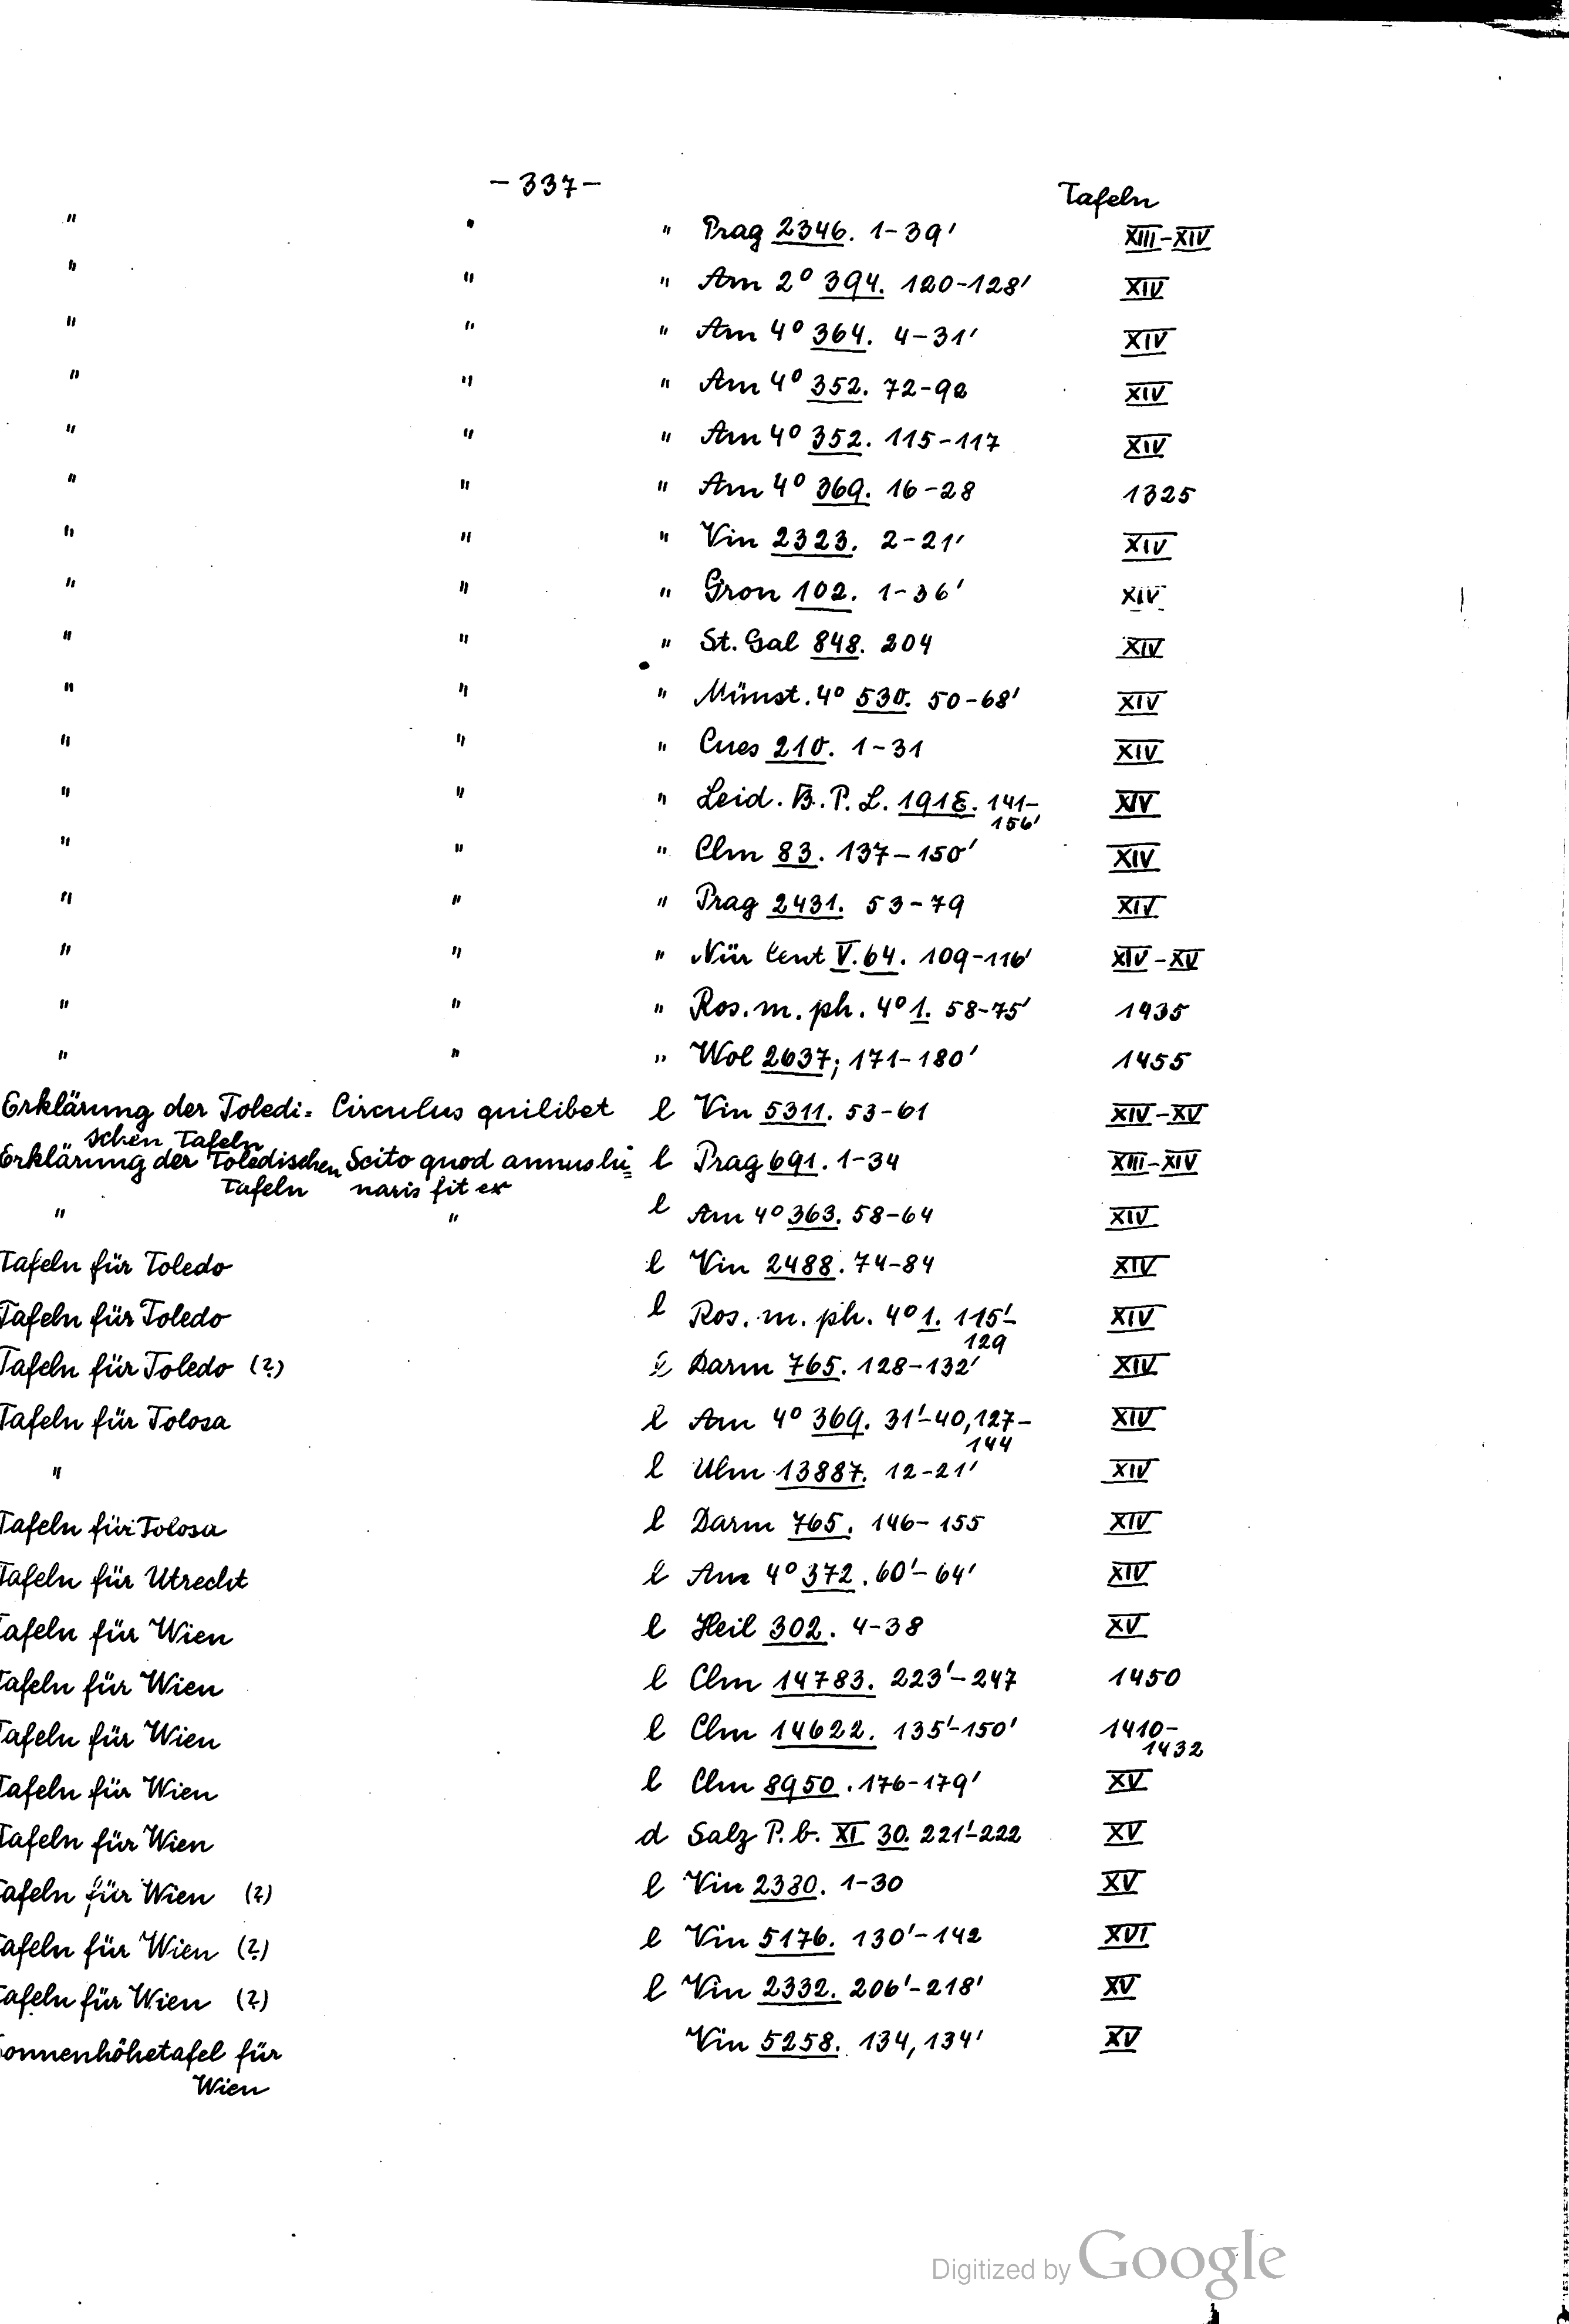 - 337 -
Tafeln
" " " Prag 2346. 1-39' XIII-XIV
" " " Am 2° 394. 120-128' XIV
" " " Am 4° 364. 4-31' XIV
" " " Am 4° 352. 72-92 XIV
" " " Am 4° 352. 115-117 XIV
" " " Am 4° 369. 16-28 1325
" " " Vin 2323. 2-21' XIV
" " " Gron 102. 1-36' XIV
" " " St. Gal 848. 204 XIV
" " " Münst. 4° 530. 50-68' XIV
" " " Cues 210. 1-31 XIV
" " " Leid. B. P. L. 191E. 141- XIV
156'
" " " Clm 83. 137-150' XIV
" " " Prag 2431. 53-79 XIV
" " " Nür Cent V. 64. 109-116' XIV-XV
" " " Ros. m. ph. 4° 1. 58-75' 1435
" " " Wol 2637; 171-180' 1455
Erklärung der Toledi= Circulus quilibet l Vin 5311. 53-61 XIV-XV
schen Tafeln
Erklärung der Toledischen Scito quod annus lu= l Prag 691. 1-34 XIII-XIV
Tafeln naris fit ex
" " l Am 4° 363. 58-64 XIV
Tafeln für Toledo l Vin 2488. 74-84 XIV
Tafeln für Toledo l Ros. m. ph. 4° 1. 115'- XIV
129
Tafeln für Toledo (?) l Darm 765. 128-132' XIV
Tafeln für Tolosa l Am 4° 369. 31'-40, 127- XIV
144
" l Ulm 13887. 12-21' XIV
Tafeln für Tolosa l Darm 765. 146-155 XIV
Tafeln für Utrecht l Am 4° 372. 60'-64' XIV
Tafeln für Wien l Heil 302. 4-38 XV
Tafeln für Wien l Clm 14783. 223'-247 1450
Tafeln für Wien l Clm 14622. 135'-150' 1410-
1432
Tafeln für Wien l Clm 8950. 176-179' XV
Tafeln für Wien d Salz P. b. XI 30. 221'-222 XV
Tafeln für Wien (?) l Vin 2380. 1-30 XV
Tafeln für Wien (?) l Vin 5176. 130'-142 XVI
Tafeln für Wien (?) l Vin 2332. 206'-218' XV
onnenhöhetafel für Vin 5258. 134, 134' XV
Wien
Digitized by Google